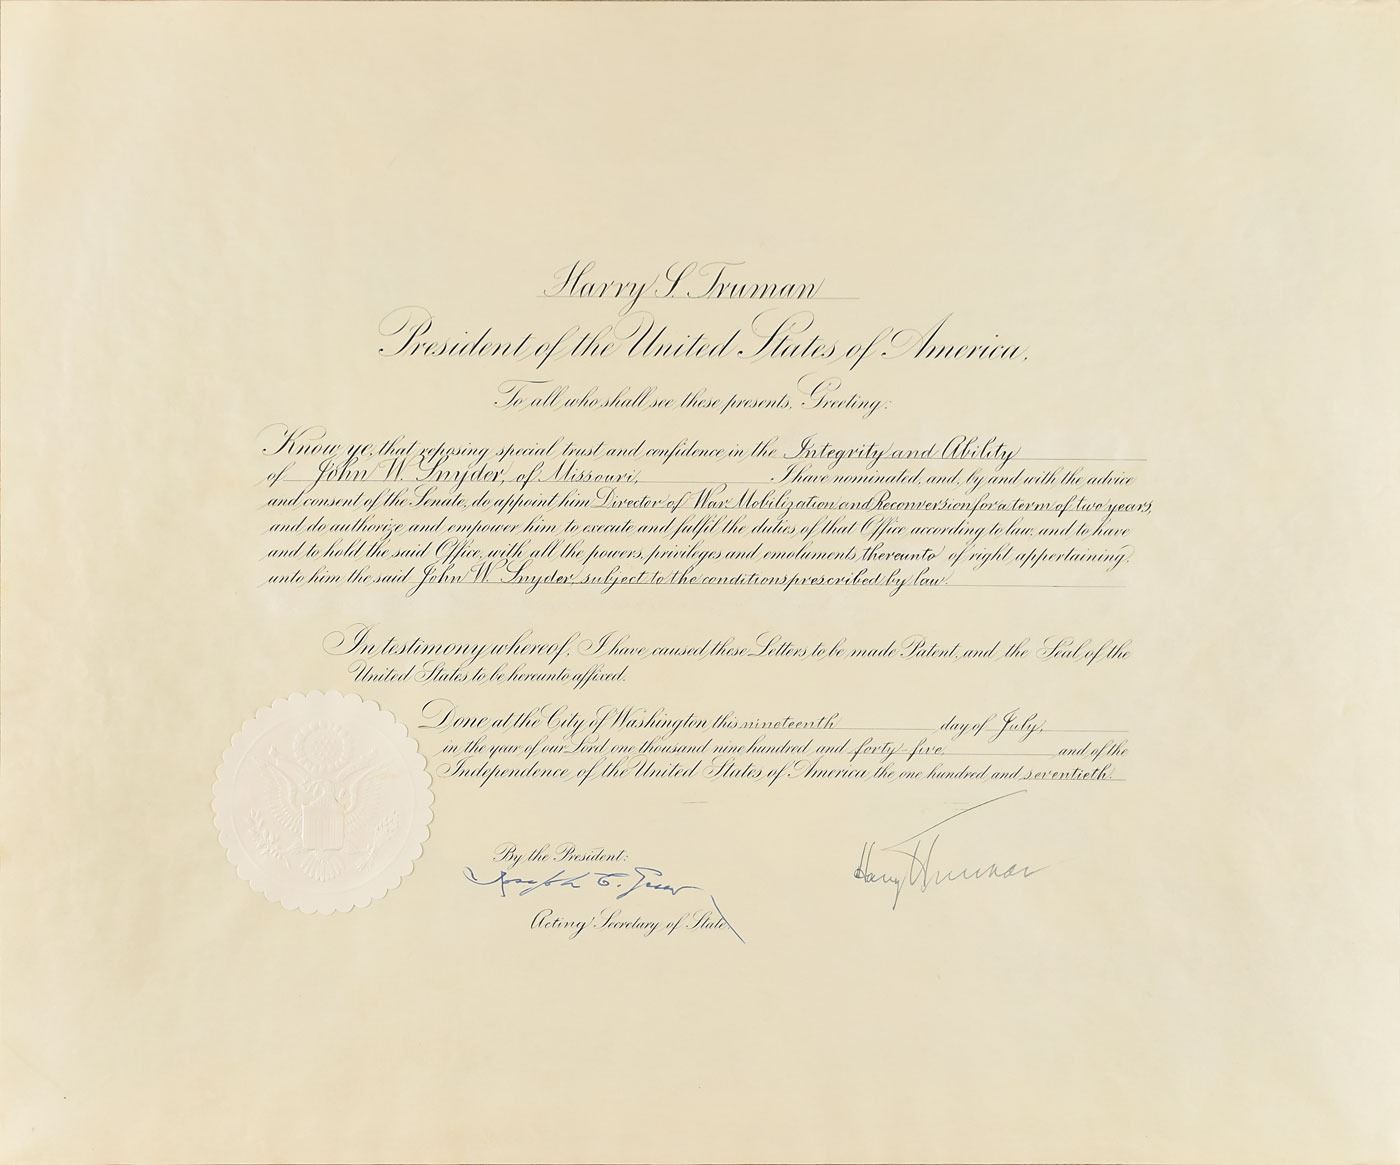 Harry S. Truman
President of the United States of America,
To all who shall see these presents, Greeting:
Know ye, that reposing special trust and confidence in the Integrity and Ability
of John W. Snyder, of Missouri, I have nominated, and, by and with the advice
and consent of the Senate, do appoint him Director of War Mobilization and Reconversion for a term of two years,
and do authorize and empower him to execute and fulfil the duties of that Office according to law, and to have
and to hold the said Office, with all the powers, privileges and emoluments thereunto of right appertaining,
unto him the said John W. Snyder, subject to the conditions prescribed by law.
In testimony whereof, I have caused these Letters to be made Patent, and the Seal of the
United States to be hereunto affixed.
Done at the City of Washington this nineteenth day of July,
in the year of our Lord one thousand nine hundred and forty-five, and of the
Independence of the United States of America the one hundred and seventieth.
By the President:
Harry Truman
Joseph C. Grew
Acting Secretary of State